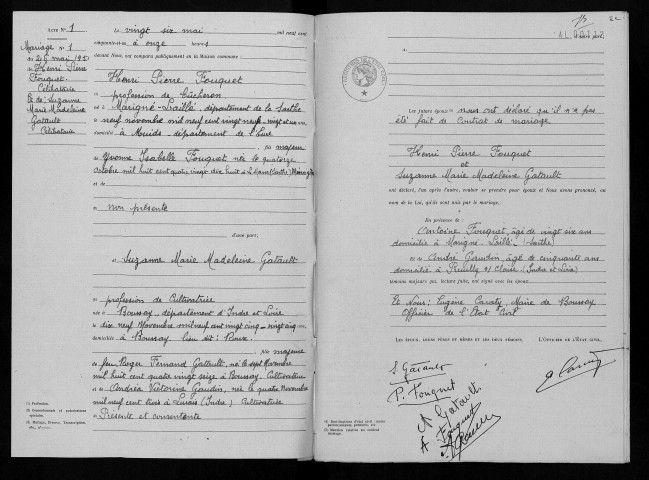 ACTE N° 1
Mariage n° 1
du 26 mai 1951
de Henri Pierre
Fouquet.
Célibataire
Et de: Suzanne
Marie Madeleine
Gatault
Célibataire
Le vingt six mai mil neuf cent
cinquante-et-un à onze heures
devant Nous, ont comparu publiquement en la Maison commune :
Henri Pierre Fouquet
profession de bûcheron
né à Marigné-Laillé, département de la Sarthe
le neuf novembre mil neuf cent vingt neuf
domicilié à Muids, département de l'Eure
fils majeur
de Yvonne Isabelle Fouquet née le quatorze
octobre mil huit cent quatre vingt dix huit à
et de
non présente
d'une part;
et Suzanne Marie Madeleine Gatault
profession de Cultivatrice
née à Boussay, département d'Indre et Loire
le dix neuf Novembre mil neuf cent vingt cinq
domiciliée à Boussay, lieu dit:
fille majeure
de feu Roger Fernand Gatault, né le sept Novembre
mil huit cent quatre vingt seize à Boussay, Cultivateur
et de Andréa Victorine Gaudin, née le quatre Novembre
mil neuf cent trois à (Indre) Cultivatrice
Présente et consentante
(1) Profession.
Les futurs époux nous ont déclaré qu'il n'a pas
été fait de Contrat de mariage
Henri Pierre Fouquet
et
Suzanne Marie Madeleine Gatault
ont déclaré, l'un après l'autre, vouloir se prendre pour époux et Nous avons prononcé, au
nom de la Loi, qu'ils sont unis par le mariage.
En présence de :
Antoine Fouquet, âgé de vingt six ans
domicilié à Marigné-Laillé (Sarthe)
et de André Gaudin, âgé de cinquante ans
domicilié à Preuilly s/ Claise (Indre et Loire)
témoins majeurs qui, lecture faite, ont signé avec les époux
Et Nous, Eugène Maire de Boussay
Officier de l'Etat Civil
LES ÉPOUX, LEURS PÈRES ET MÈRES ET LES DEUX TÉMOINS, L'OFFICIER DE L'ÉTAT CIVIL,
S. Gatault
P. Fouquet
A Gatault
A Fouquet